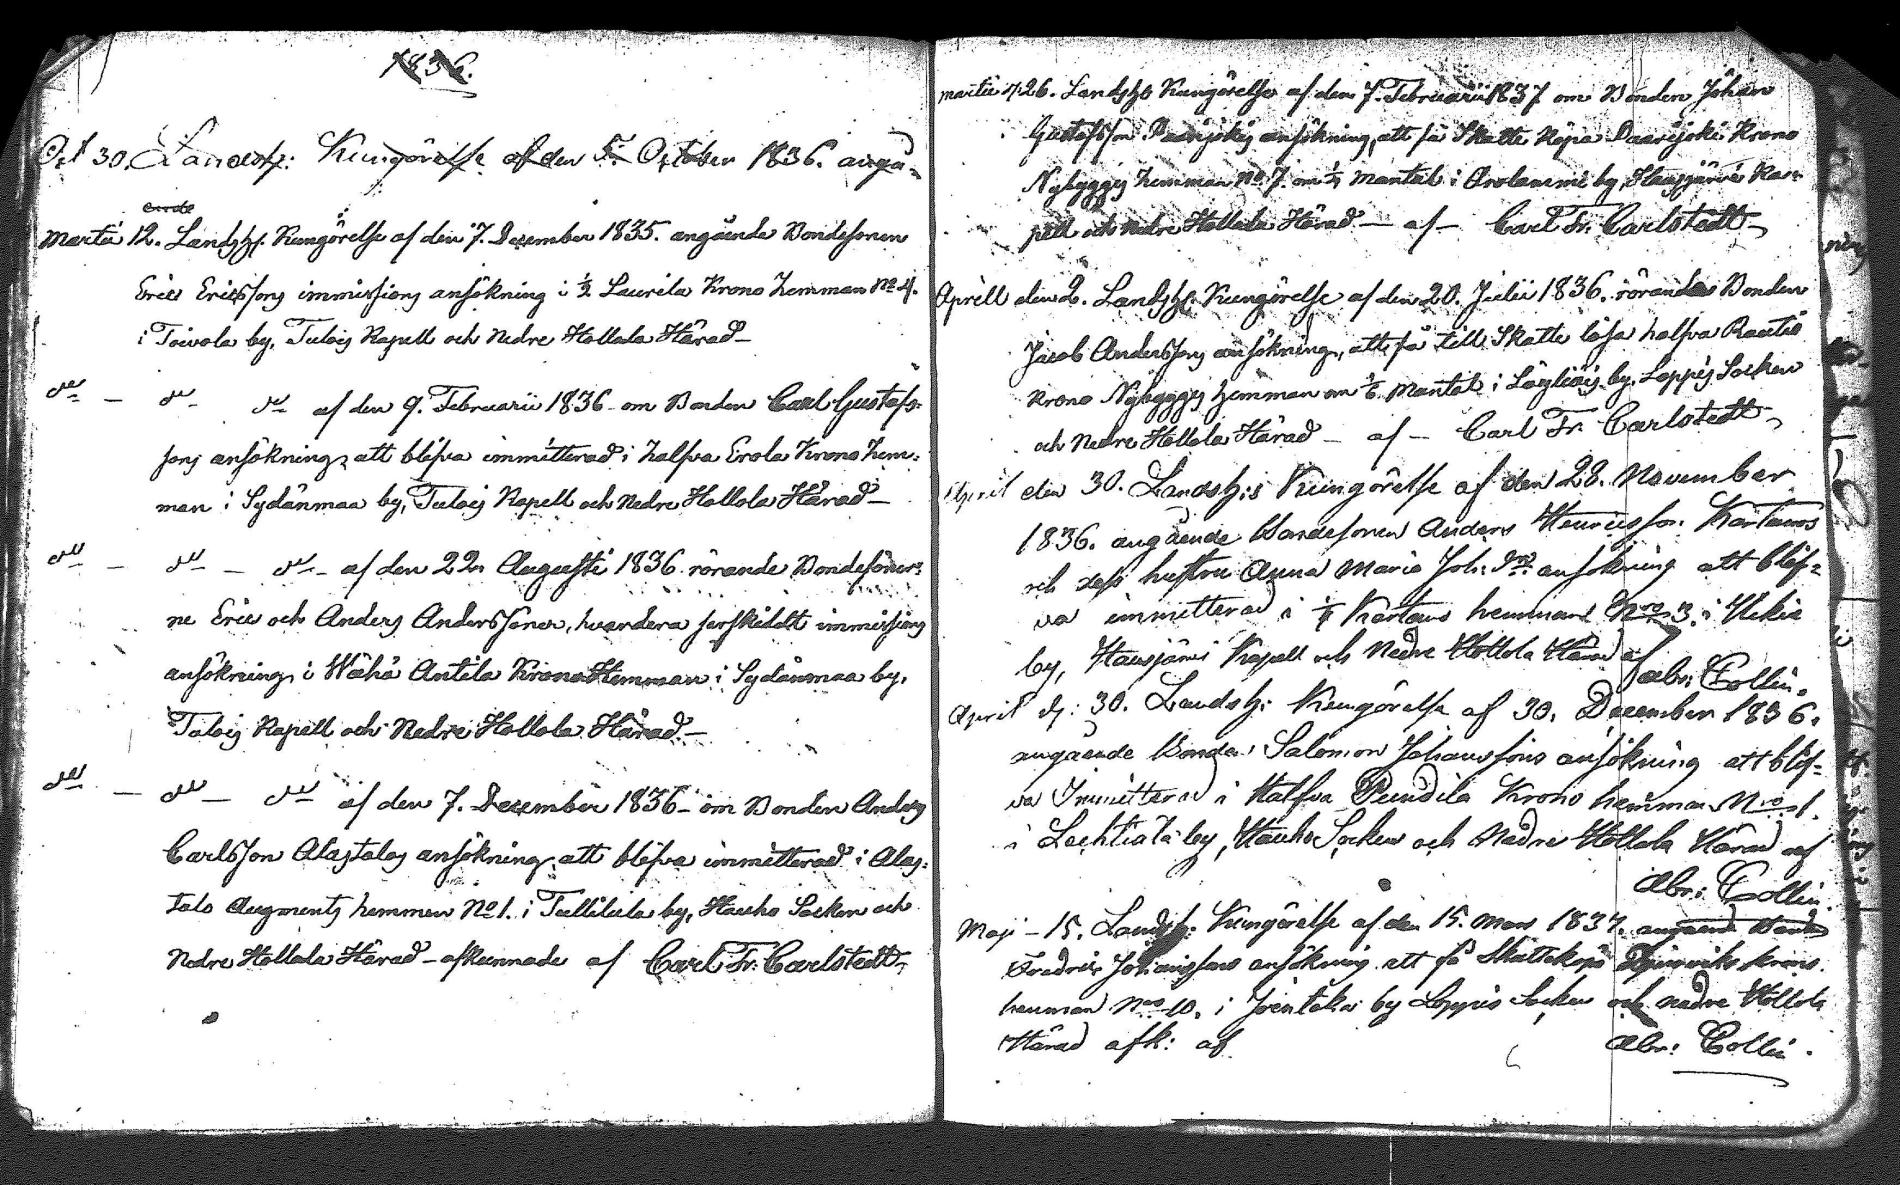 1836.
Oct 30. Landsh: Kungörelse af den 5. October 1836. angå-
ende
Martii 12. Landshf. Kungörelse af den 7. December 1835. angående Bondesonen
Eric Ericssons immissions ansökning i ½ Laurila Krono hemman No 4.
i Toivola by, Tulois Kapell och Nedre Hollola Härad –
dito – dito dito af den 9. Februarii 1836 – om Bonden Carl Gustafs-
sons ansökning, att blifva immitterad i halfva Erola Krono hem-
man i Sydänmaa by, Tulois Kapell och Nedre Hollola Härad –
dito – dito – dito – af den 22 Augusti 1836 rörande Bondesöner-
ne Eric och Anders Anderssöner, hvardera serskildt immissions
ansökning, i Wähä Antila Krono Hemman i Sydänmaa by,
Tulois Kapell och Nedre Hollola Härad. –
dito – dito – dito af den 7. December 1836 – om Bonden Anders
Carlsson Alastalos ansökning, att blifva immitterad i Alas-
talo Augments hemman No 1. i Tullikila by, Hauho Socken och
Nedre Hollola Härad – afkunnade af Carl Fr. Carlstedt
Martii d: 26. Landshf Kungörelse af den 7. Februarii 1837 om Bonden Johan
Gustafsson Paarijokis ansökning, att få Skatte Köpa Paarijoki Krono
Nybygges hemman No 7. om mantal i by, Hausjärvi Ka-
pell och Nedre Hollola Härad – af – Carl Fr. Carlstedt
Aprill den 2. Landshf. Kungörelse af den 20. Julii 1836. rörande Bonden
Jacob Anderssons ansökning, att få till Skatte lösa halfva
Krono Nybygges hemman om 1/6 Mantal i by, Loppis Socken
och Nedre Hollola Härad – af – Carl Fr. Carlstedt
April den 30. Landsh:s Kungörelse af den 28. November
1836. angående Bondesonen Anders Henricsson Kartanos
och dess hustru Anna Maria Joh: dr: ansökning att blif-
va immitterad i Kartano hemman Nro 3. i Hikiä
by, Hausjärvi Kapell och Nedre Hollola Härad af
Abr: Collin.
April d: 30. Landsh: Kungörelse af 30. December 1836.
angående Bonden Salomon Johanssons ansökning att blif-
va Immitterad i Halfva Krono hemman Nro 1.
i by, Hauho Socken och Nedre Hollola Härad af
Abr: Collin.
Maji – 15. Landsh: Kungörelse af den 15. Mars 1837. angående
Fredric Johanssons ansökning att få Skatteköpa krono
hemman Nro 10. i by Loppis Socken och nedre Hollola
Härad afk: af Abr: Collin.